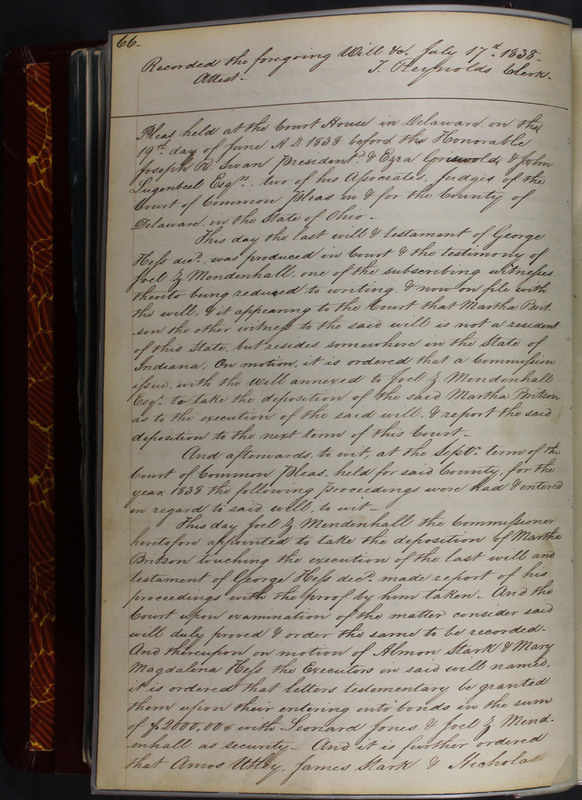 66.
Recorded the foregoing Will &c. July 17th 1838-
Attest- T. Reynolds Clerk-
Pleas held at the Court House in Delaware on the
19th day of June A D 1838 before the Honorable
Joseph R. Swan President & Ezra Griswold, & John
Lugenbeel Esqrs. two of his Associates, Judges of the
Court of Common Pleas in & for the County of
Delaware in the State of Ohio-
This day the last will & testament of George
Hess decd. was produced in Court & the testimony of
Joel Z Mendenhall, one of the subscribing witnesses
thereto being reduced to writing, & now on file with
the will, & it appearing to the Court that Martha Brit-
-son the other witness to the said will is not a resident
of this State, but resides somewhere in the State of
Indiana, On motion, it is ordered that a Commission
issue, with the Will annexed to Joel Z. Mendenhall
Esqr. to take the deposition of the said Martha Britson
as to the execution of the said will, & report the said
deposition to the next term of this Court-
And afterwards to wit, at the Septr. term of the
Court of Common Pleas, held for said County, for the
year 1838 the following Proceedings were had & entered
in regard to said will, to wit-
This day Joel Z Mendenhall the Commissioner
heretofore appointed to take the deposition of Martha
Britson touching the execution of the last will and
testament of George Hess decd. made report of his
proceedings with the proof by him taken- And the
Court upon examination of the matter consider said
will duly proved & order the same to be recorded-
And thereupon on motion of Almon Stark & Mary
Magdalena Hess the Executors in said will named,
it is ordered that letters testementary be granted
them upon their entering into bonds in the sum
of $2000,00 with Leonard Jones & Joel Z Mend-
-enhall as security- And it is further ordered
that Amos Utley, James Stark & Nicholas